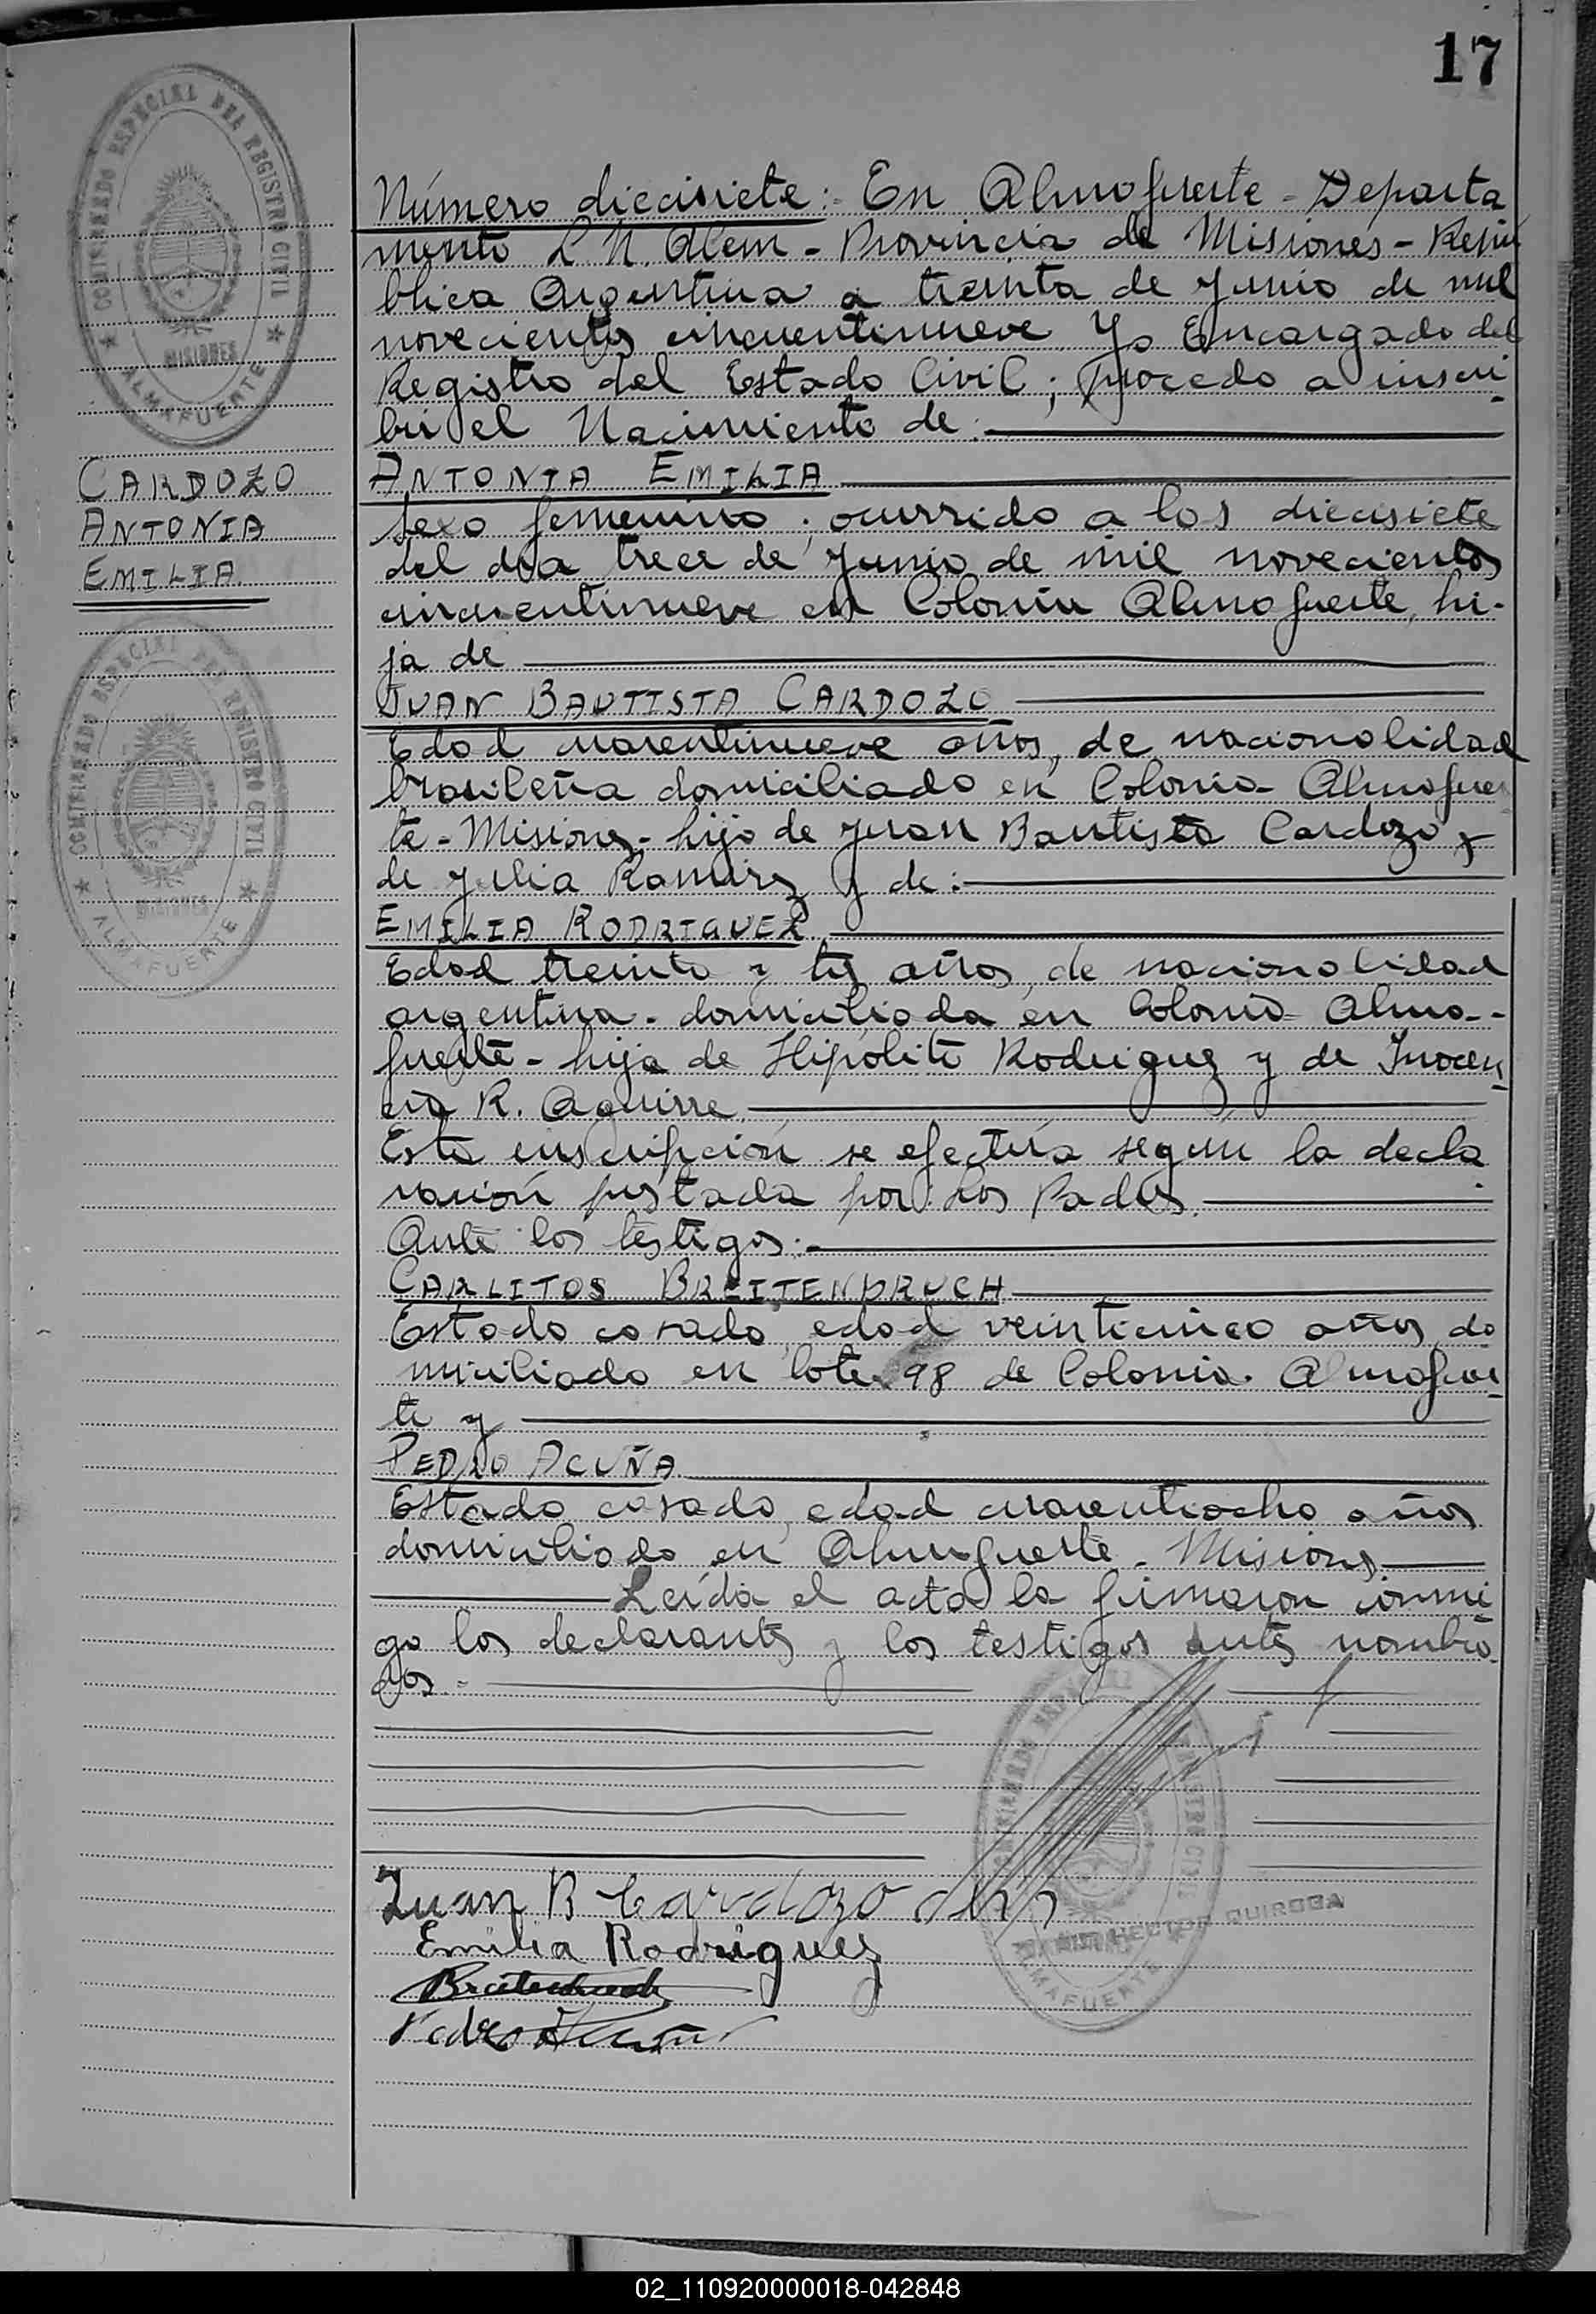 17
COMISIONADO ESPECIAL DEL REGISTRO CIVIL
MISIONES
ALMAFUERTE
CARDOZO
ANTONIA
EMILIA.
COMISIONADO ESPECIAL DEL REGISTRO CIVIL
MISIONES
ALMAFUERTE
Número diecisiete: En Almafuerte - Departa
mento L. N. Alem - Provincia de Misiones - Repú
blica Argentina a treinta de Junio de mil
novecientos cincuentinueve Yo Encargado del
Registro del Estado Civil; procedo a inscri-
bir el Nacimiento de:
ANTONIA EMILIA
sexo femenino; ocurrido a los diecisiete
del día trece de Junio de mil novecientos
cincuentinueve en Colonia Almafuerte, hi-
ja de
JUAN BAUTISTA CARDOZO
Edad cuarentinueve años, de nacionalidad
brasileña domiciliado en Colonia Almafuer
te - Misiones - hijo de Juan Bautista Cardozo y
de Julia Ramirez y de:
EMILIA RODRIGUEZ
Edad treinta y tres años, de nacionalidad
argentina - domiciliada en Colonia Alma-
fuerte - hija de Hipólito Rodriguez y de Inocen-
cia R. Aguirre.
Esta inscripción se efectúa según la decla
ración prestada por: los Padres.
Ante los testigos:-
CARLITOS BREITENBRUCH
Estado casado, edad veinticinco años do
miciliado en lote 98 de Colonia Almafuer-
te y
PEDRO ACUÑA
Estado casado, edad cuarentiocho años
domiciliado en Almafuerte - Misiones
Leída el acta la firmaron conmi
go los declarantes y los testigos antes nombra
dos.-
Juan B Cardozo
Emilia Rodriguez
Breitenbruch
Pedro Acuña
HECTOR QUIROGA
ALMAFUERTE
02_110920000018-042848